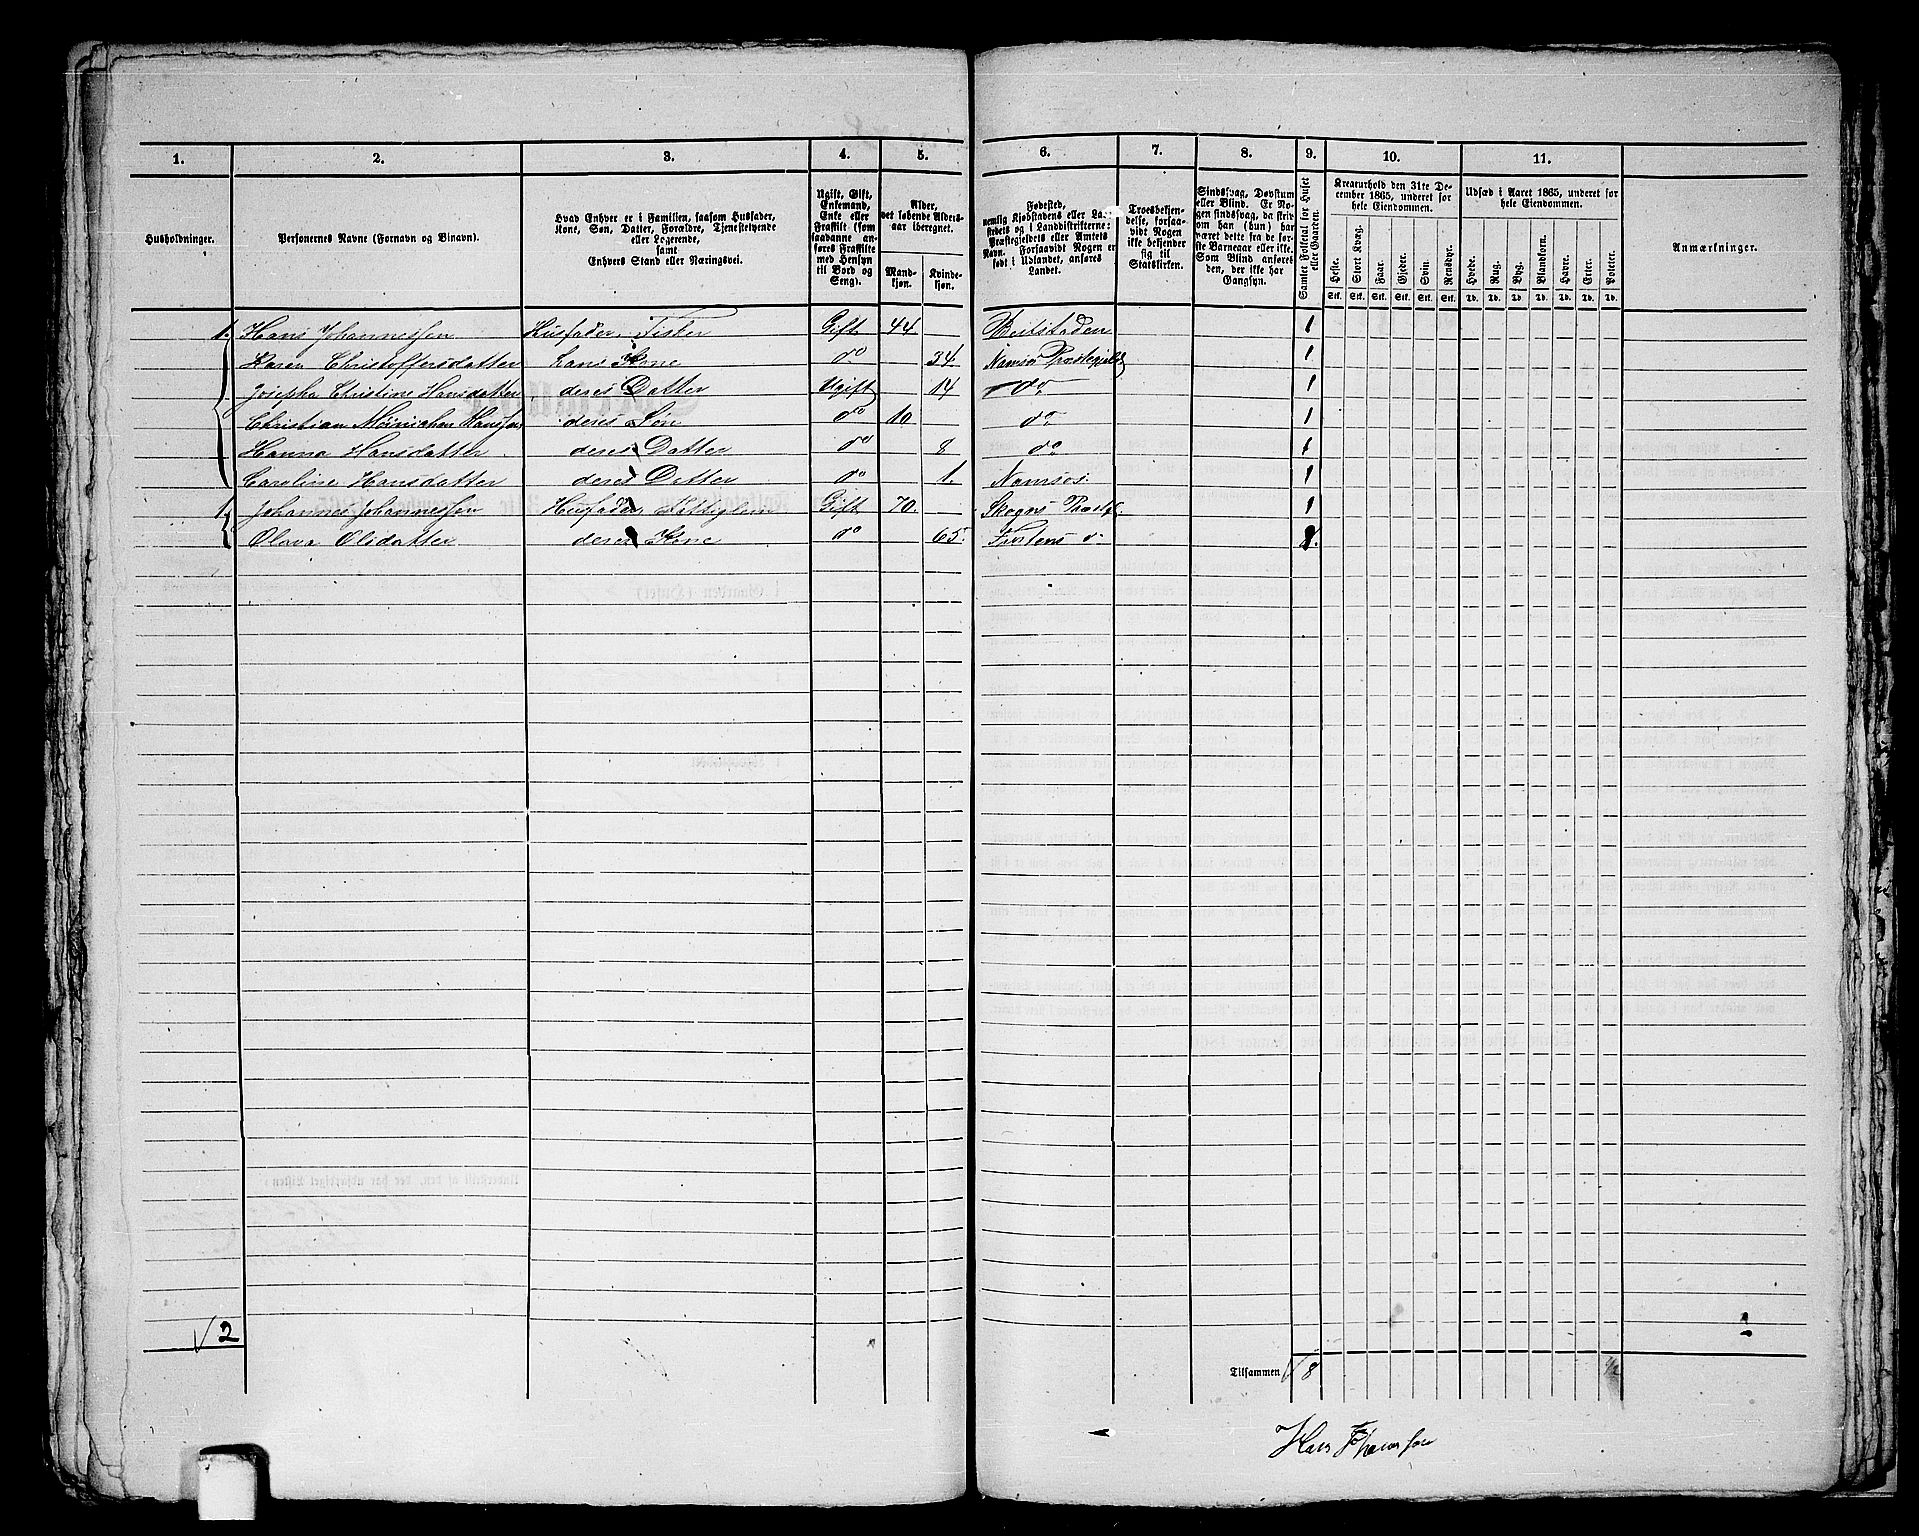 1. 2. 3. 4. 5. 6. 7. 8. 9. 10. 11.
Husholdninger.
Personernes Navne (Fornavn og Binavn).
Hvad Enhver er i Familien, saasom Husfader,
Kone, Søn, Datter, Forældre, Tjenestetyende
eller Logerende,
samt
Enhvers Stand eller Næringsvei.
Ugift, Gift,
Enkemand,
Enke eller
Fraskilt (som
saadanne an-
føres Fraskilte
med Hensyn
til Bord og
Seng).
Alder,
det løbende Alders-
aar iberegnet.
Mand-
kjøn.
Kvinde-
kjøn.
Fødested,
nemlig Kjøbstadens eller La-
destedets og i Landdistrikterne:
Præstegjeldets eller Amtets
Navn. Forsaavidt Nogen er
født i Udlandet, anføres
Landet.
Troesbekjen-
delse, forsaa-
vidt Nogen
ikke bekjender
sig til
Statskirken.
Sindssvag, Døvstum
eller Blind. Er No-
gen sindssvag, da skriv
om han (hun) har
været dette fra de før-
ste Barneaar eller ikke.
Som Blind anføres
den, der ikke har
Gangsyn.
Samlet Folketal for Huset
eller Gaarden.
Kreaturhold den 31te De-
cember 1865, underet for
hele Eiendommen.
Heste. Stort Kvæg. Faar. Gjeder. Svin. Rensdyr.
Stk. Stk. Stk. Stk. Stk. Stk.
Udsæd i Aaret 1865, underet for
hele Eiendommen.
Hvede. Rug. Byg. Blandkorn. Havre. Erter. Poteter.
Td. Td. Td. Td. Td. Td. Td.
Anmærkninger.
1. Hans Johannessen Husfader, Fisker Gift 44 Beitstaden 1
Karen Christoffersdatter hans Kone do 34 Namsos Præstegjeld 1
Josepha Christine Hansdatter deres Datter Ugift 14 do 1
Christian Meinichen Hanssen deres Søn do 10. do 1
Hanna Hansdatter deres Datter do 8 do 1
Caroline Hansdatter deres Datter do 1. Namsos. 1
1 Johannes Johannessen Husfader, Gift 70. Skogns Præstg. 1
Olava Olsdatter deres Kone do 65. do 1.
√ 2
Tilsammen √ 8
Hans